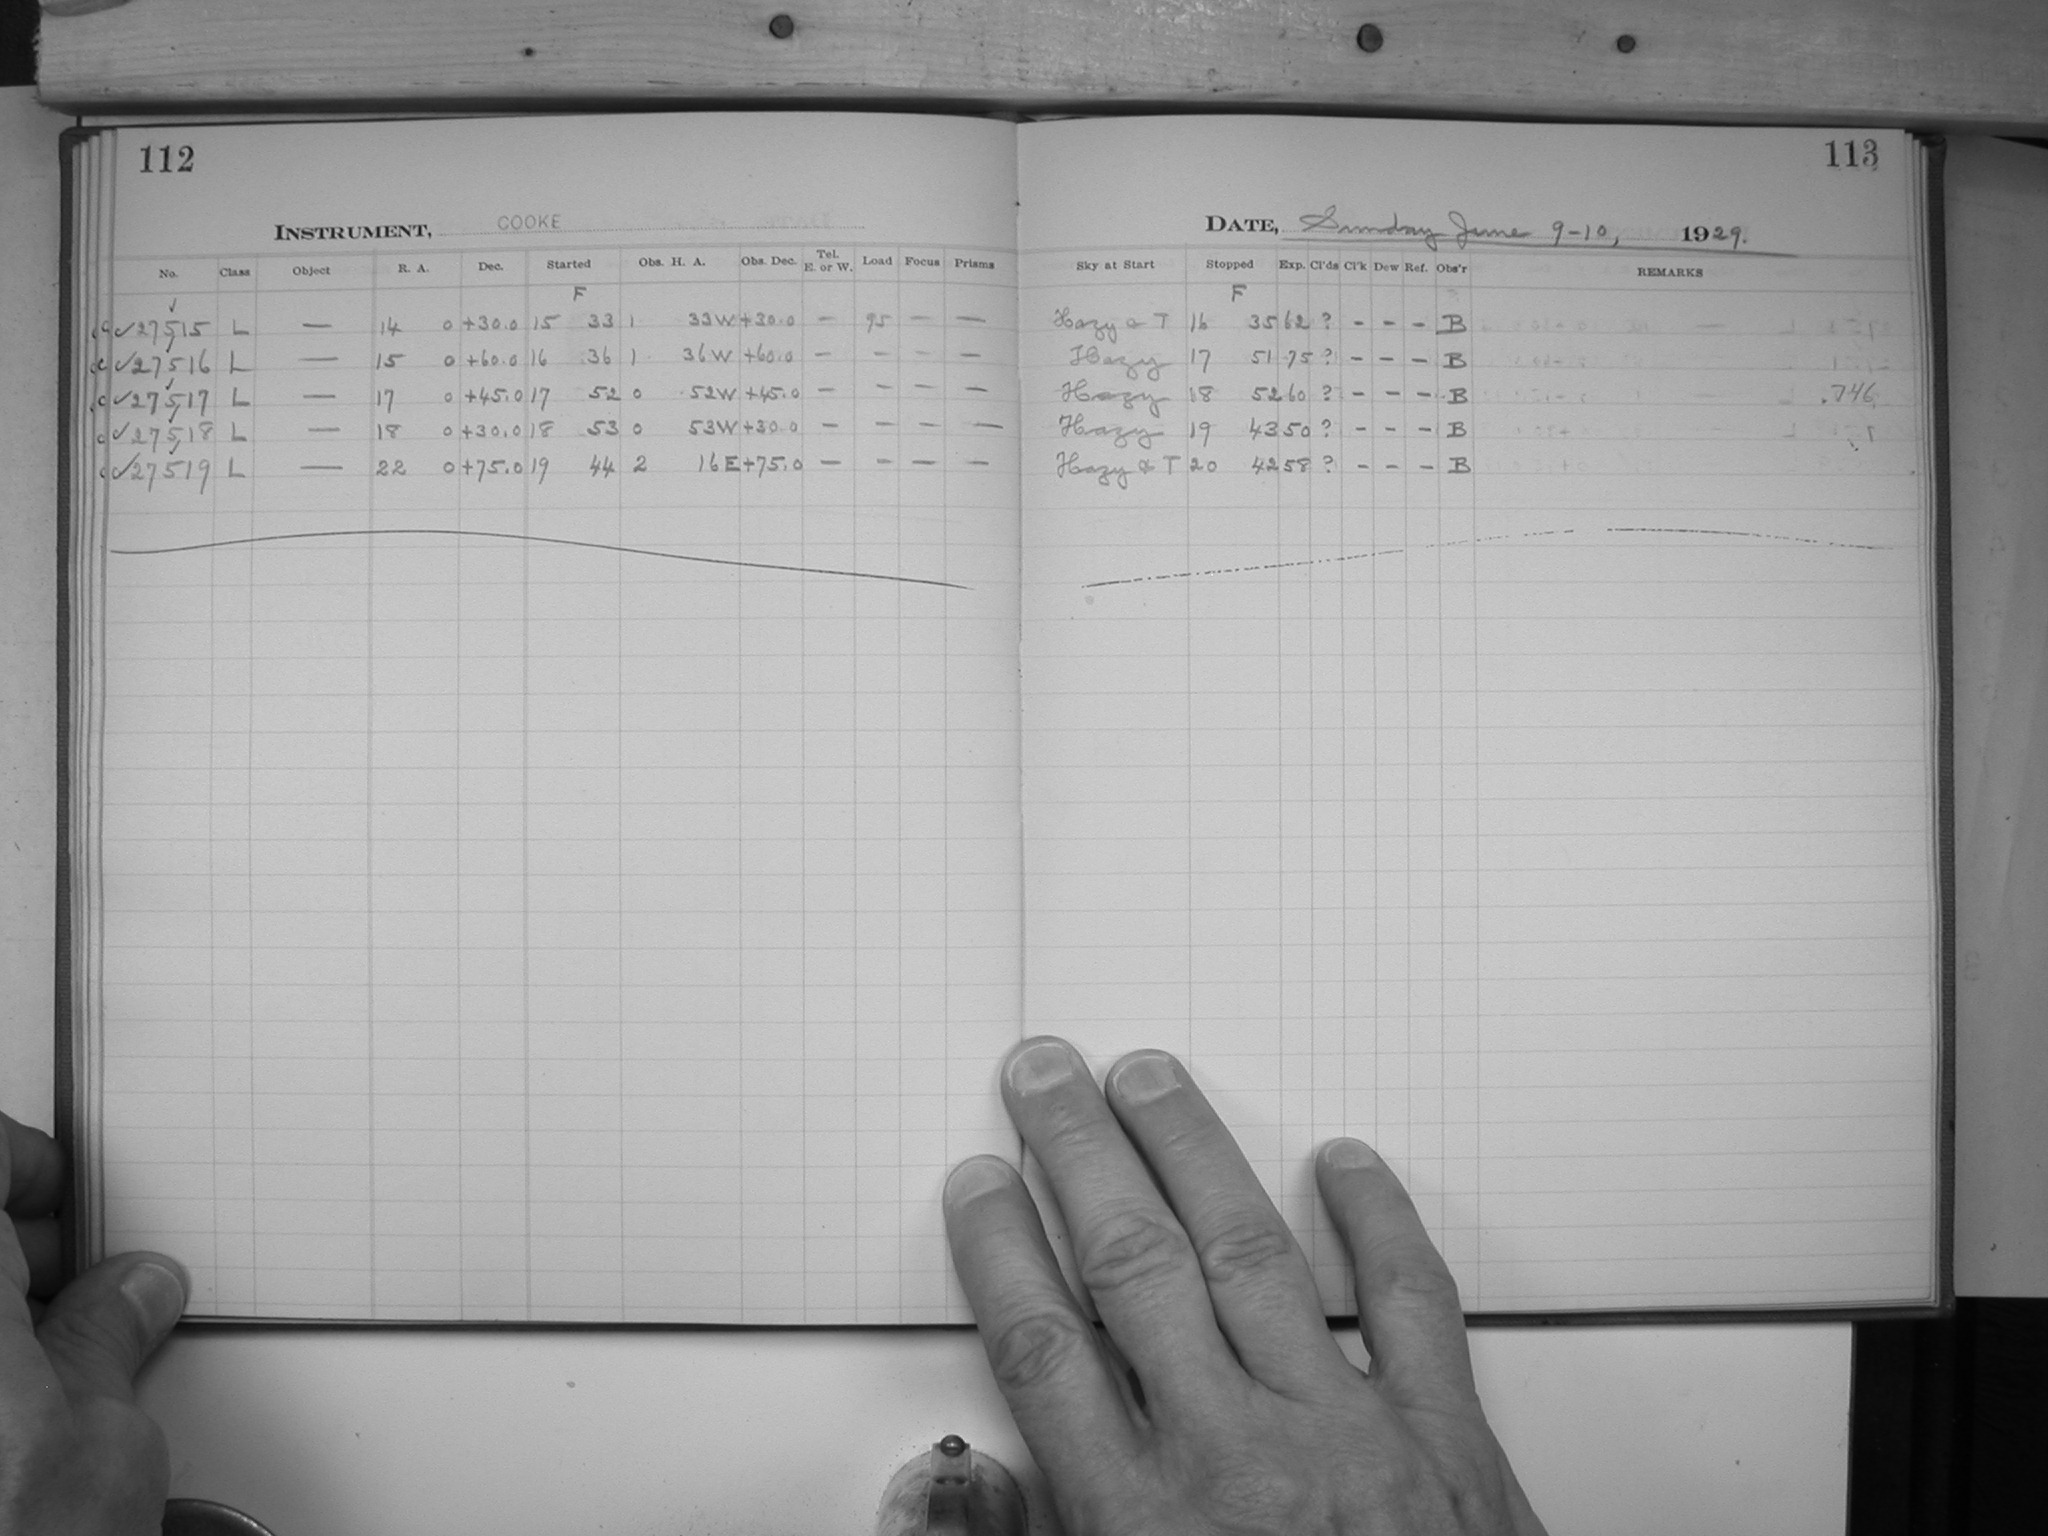 112
INSTRUMENT, COOKE
No. Class Object R. A. Dec. Started Obs. H. A. Obs. Dec. Tel. E. or W. Load Focus Prisms
F
✓27515 L — 14 0 +30.0 15 33 1 33W +30.0 — 95 — —
✓27516 L — 15 0 +60.0 16 36 1 36W +60.0 — — — —
✓27517 L — 17 0 +45.0 17 52 0 52W +45.0 — — — —
✓27518 L — 18 0 +30.0 18 53 0 53W +30.0 — — — —
✓27519 L — 22 0 +75.0 19 44 2 16E +75.0 — — — —
113
DATE, Sunday June 9-10, 1929.
Sky at Start Stopped Exp. Cl'ds Cl'k Dew Ref. Obs'r REMARKS
F
Hazy & T 16 35 62 ? - - - B
Hazy 17 51 75 ? - - - B
Hazy 18 52 60 ? - - - B .746
Hazy 19 43 50 ? - - - B
Hazy & T 20 42 58 ? - - - B